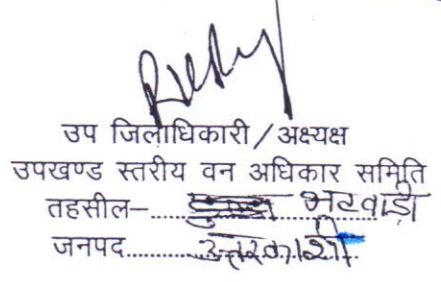 उप जिलाधिकारी/अक्ष्यक्ष
उपखण्ड स्तरीय वन अधिकार समिति
तहसील–.......... भटवाडी
जनपद..........उत्तरकाशी